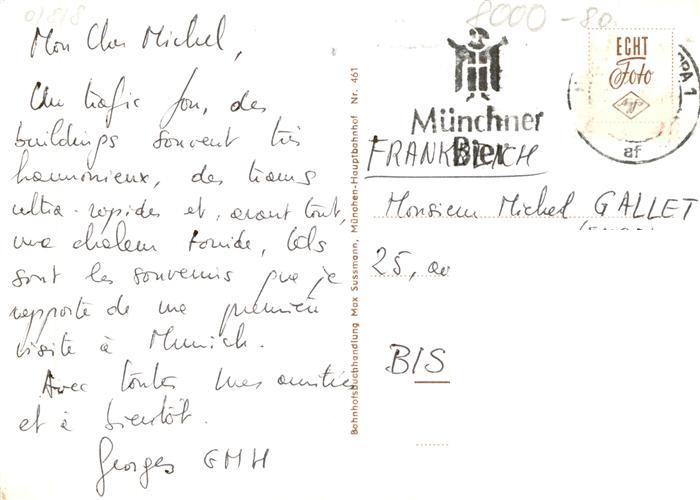 8000-80
Mon Cher Michel,
Un trafic fou, des
buildings souvent très
harmonieux, des trams
ultra-rapides et, avant tout,
une chaleur torride, tels
sont les souvenirs que je
rapporte de ma première
visite à Munich.
Avec toutes mes amitiés
et à bientôt.
Georges GMH
Bahnhofsbuchhandlung Max Sussmann, München-Hauptbahnhof Nr. 461
Münchner
Bier
ECHT
Foto
Agfa
PA 1
af
FRANKREICH
Monsieur Michel GALLET
25, av
BIS